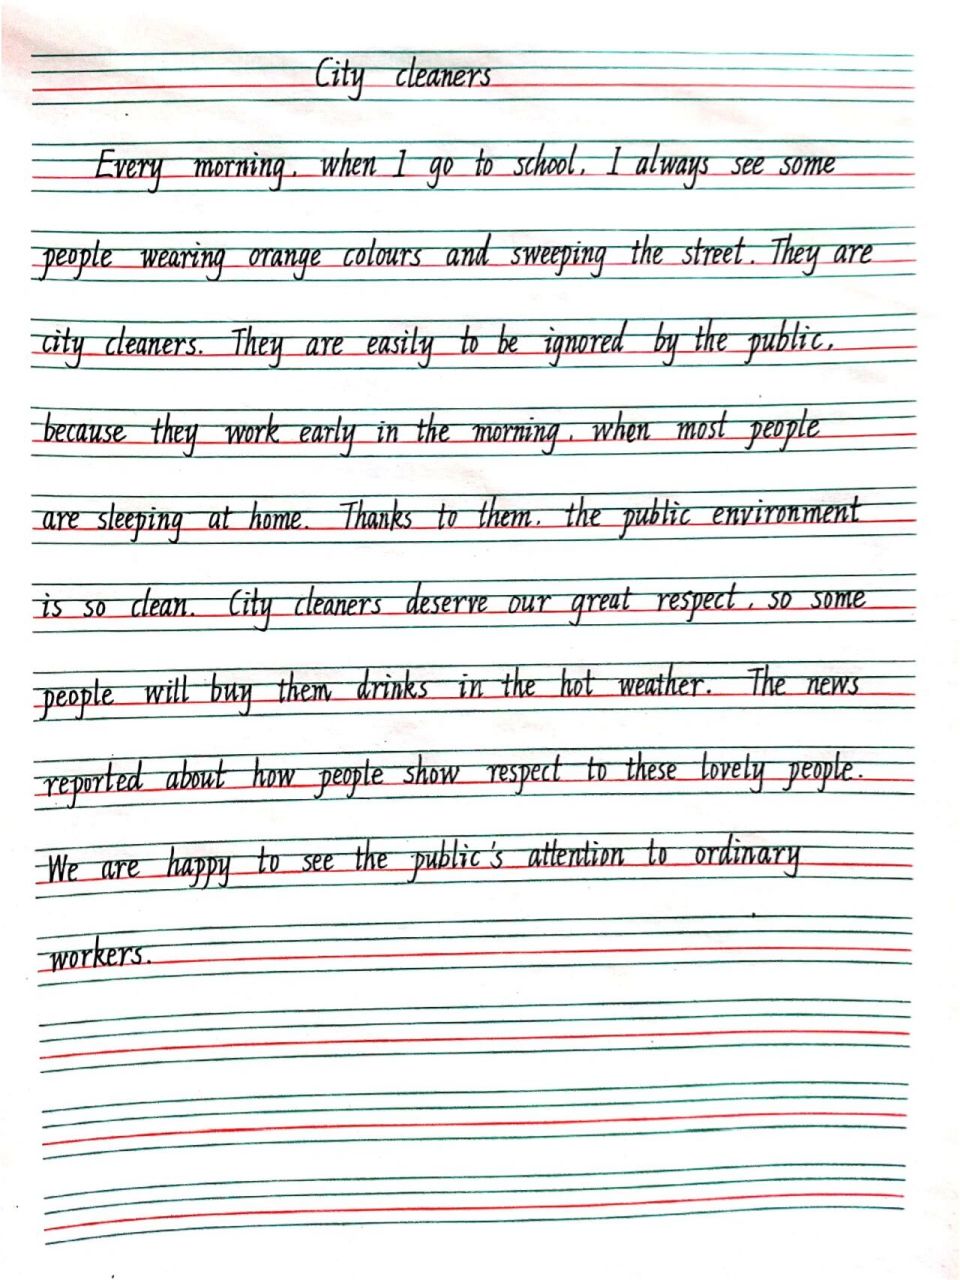 City cleaners
Every morning, when I go to school, I always see some
people wearing orange colours and sweeping the street. They are
city cleaners. They are easily to be ignored by the public,
because they work early in the morning, when most people
are sleeping at home. Thanks to them, the public environment
is so clean. City cleaners deserve our great respect, so some
people will buy them drinks in the hot weather. The news
reported about how people show respect to these lovely people.
We are happy to see the public's attention to ordinary
workers.